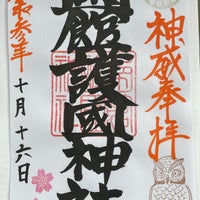 神威奉拝
函館護國神社
令和参年
十月十六日